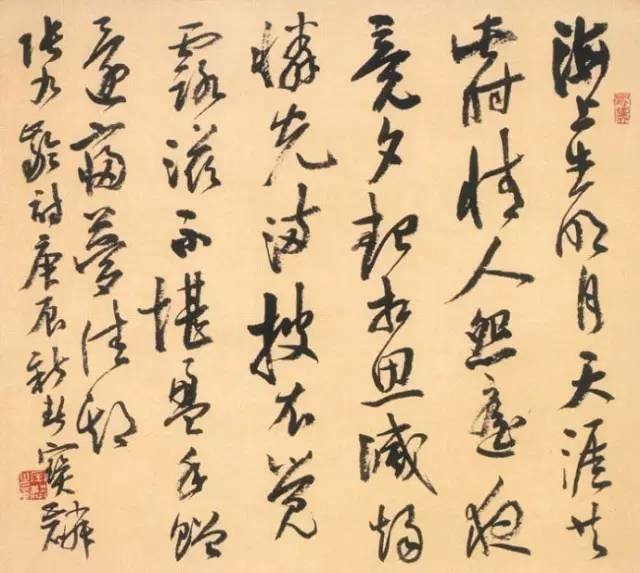 海上生明月天涯共
此時情人怨遙夜
竟夕起相思滅燭
憐光滿披衣覺
露滋不堪盈手贈
還寢夢佳期
張九齡詩庚辰新春寶麟